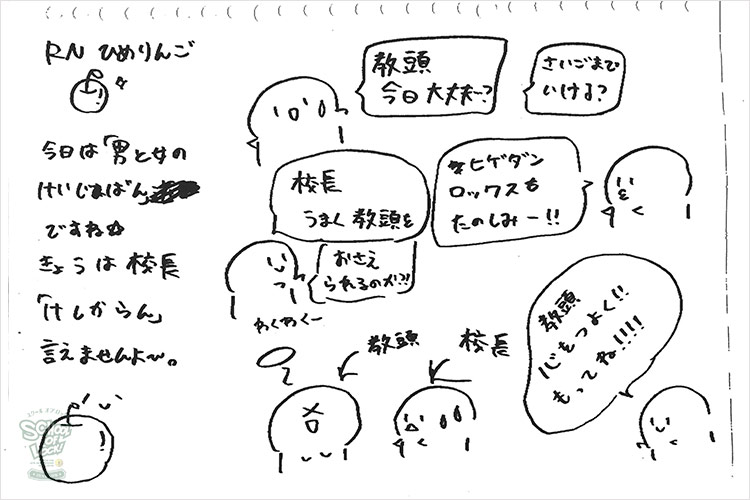 RN ひめりんご
今日は「男と女の
けいじばん」
ですね☆
きょうは校長
「けしからん」
言えませんよ〜。
教頭
今日大丈夫ー?
さいごまで
いける?
校長
うまく教頭を
おさえ
られるのか?!
わくわくー
ヒゲダン
ロックスも
たのしみー!!
教頭
校長
教頭
心をつよく!!
もってね!!!!
SCHOOL OF LOCK!